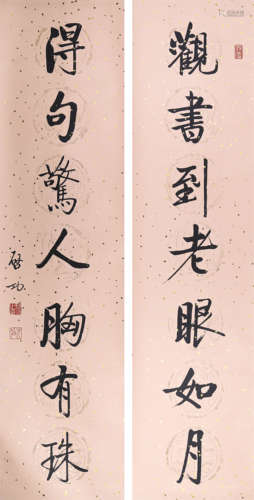 觀書到老眼如月
得句驚人胸有珠
啓功